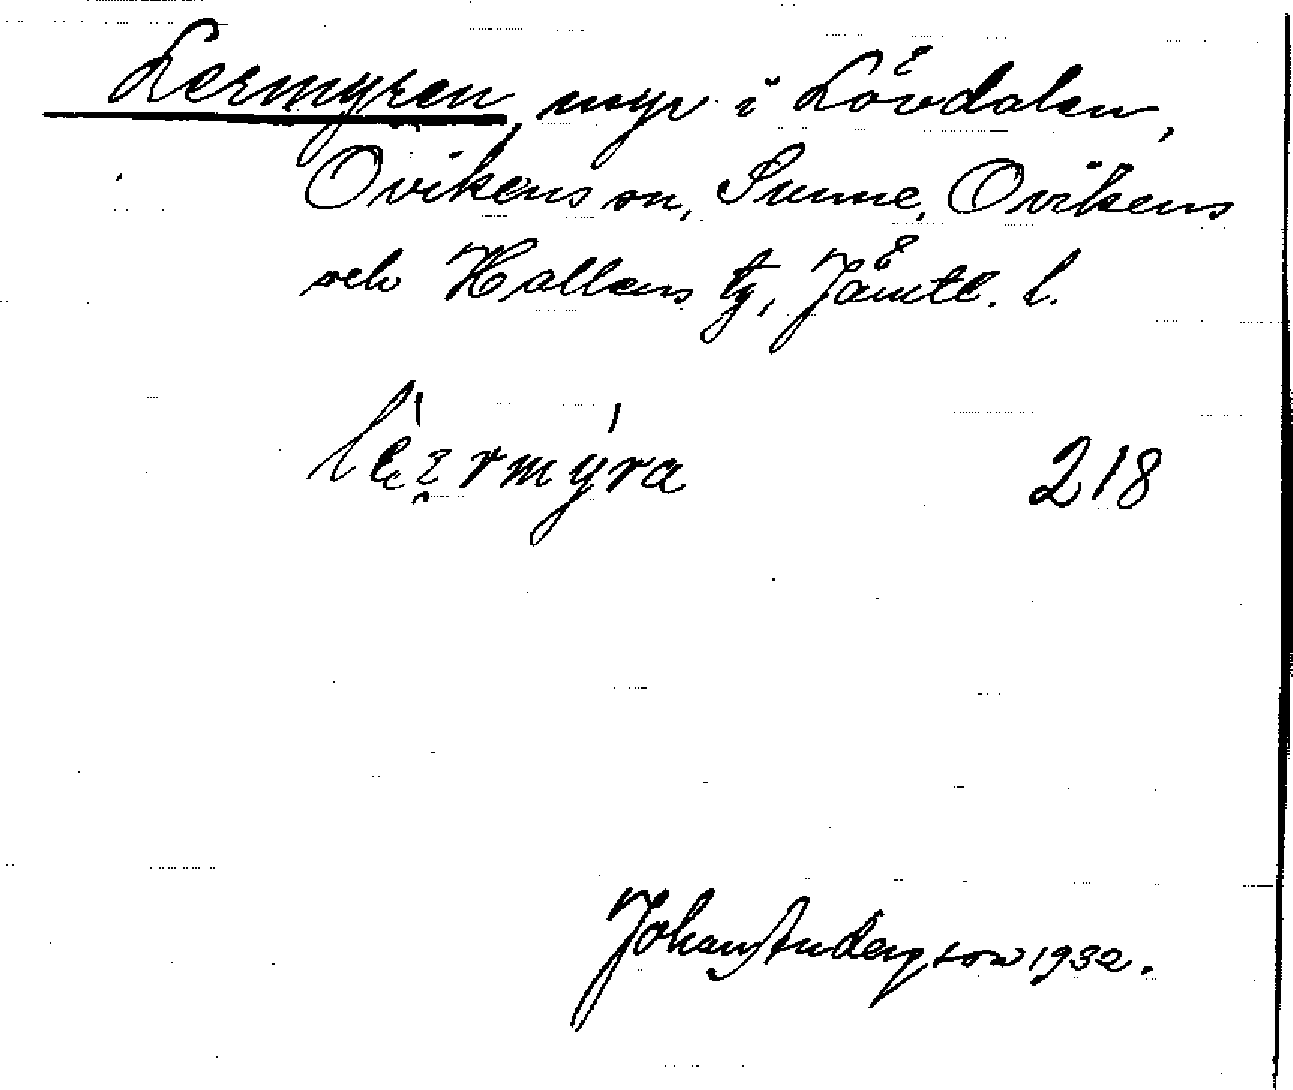 Lermyren, myr i Lövdalen,
Ovikens sn, Sunne, Ovikens
och Hallens tg, Jämtl. l.
218
Johan Anderson 1932.